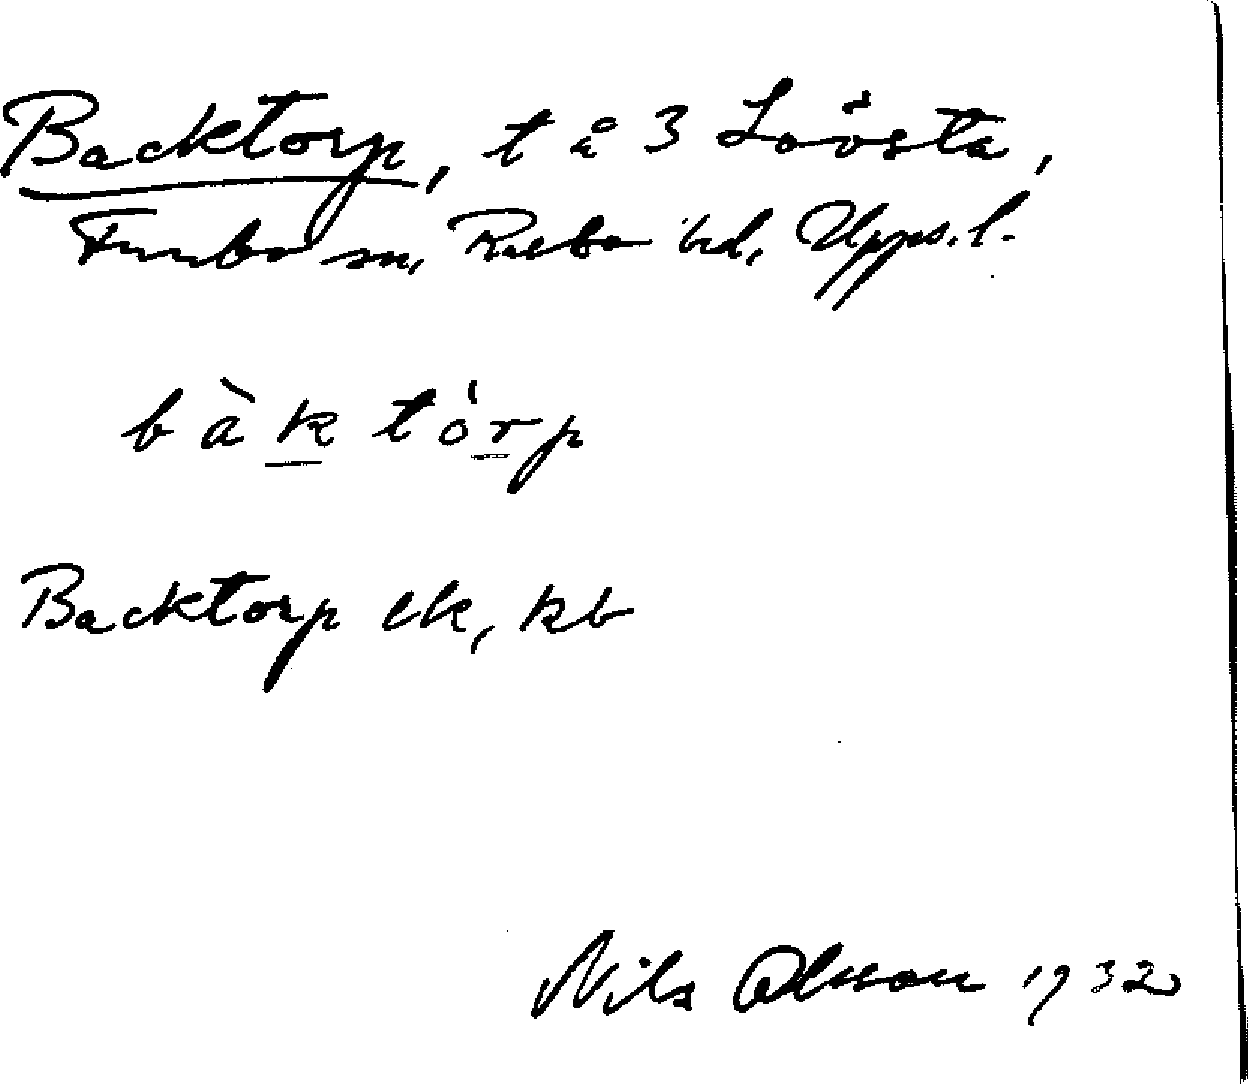 Backtorp, t å 3 Lövsta,
Funbo sn, Rasbo hd, Upps. l.
bàktórp
Backtorp ek, kb
Nils Olsson 1932